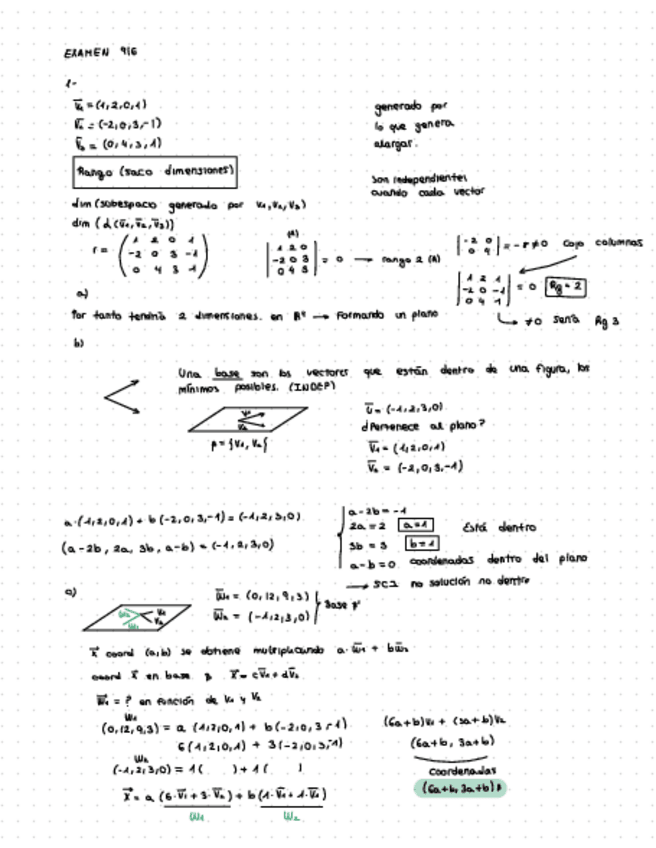 EXAMEN 9/6
1-
V₁ = (1,2,0,1)
V₂ = (-2,0,3,-1)
V₃ = (0,4,3,1)
generado por
lo que genera
alargar.
Rango (saco dimensiones)
son independientes
cuando cada vector
dim (subespacio generado por V₁, V₂, V₃)
dim (L(V₁, V₂, V₃))
r = ( 1 2 0 1
-2 0 3 -1
0 4 3 1 )
(A)
| 1 2 0
-2 0 3
0 4 3 | = 0 → rango 2 (A)
| -2 0
0 4 | = -8 ≠ 0 cojo columnas
| 1 2 1
-2 0 -1
0 4 1 | = 0 Rg = 2
↳ ≠0 sería Rg 3
a)
Por tanto tendría 2 dimensiones. en R⁴ → Formando un plano
b)
Una base son los vectores que están dentro de una figura, los
mínimos posibles. (INDEP)
V₁
V₂
β = {V₁, V₂}
u = (-1,2,3,0)
¿Pertenece al plano?
V₁ = (1,2,0,1)
V₂ = (-2,0,3,-1)
a·(1,2,0,1) + b(-2,0,3,-1) = (-1,2,3,0)
(a-2b, 2a, 3b, a-b) = (-1,2,3,0)
a-2b = -1
2a = 2 a=1 Está dentro
3b = 3 b=1
a-b = 0 coordenadas dentro del plano
→ SCI no solución no dentro
c)
W₂ V₁
V₂
W₁
W₁ = (0,12,9,3)
W₂ = (-1,2,3,0)
Base β'
X coord (a,b) se obtiene multiplicando a·W₁ + bW₂
coord X en base β X = cV₁ + dV₂
W₁ = ? en función de V₁ y V₂
W₁
(0,12,9,3) = a (1,2,0,1) + b(-2,0,3,-1)
6(1,2,0,1) + 3(-2,0,3,-1)
W₂
(-1,2,3,0) = 1( ) + 1( )
X = a (6·V₁ + 3·V₂) + b(1·V₁ + 1·V₂)
W₁ W₂
(6a+b)V₁ + (3a+b)V₂
(6a+b, 3a+b)
coordenadas
(6a+b, 3a+b)β